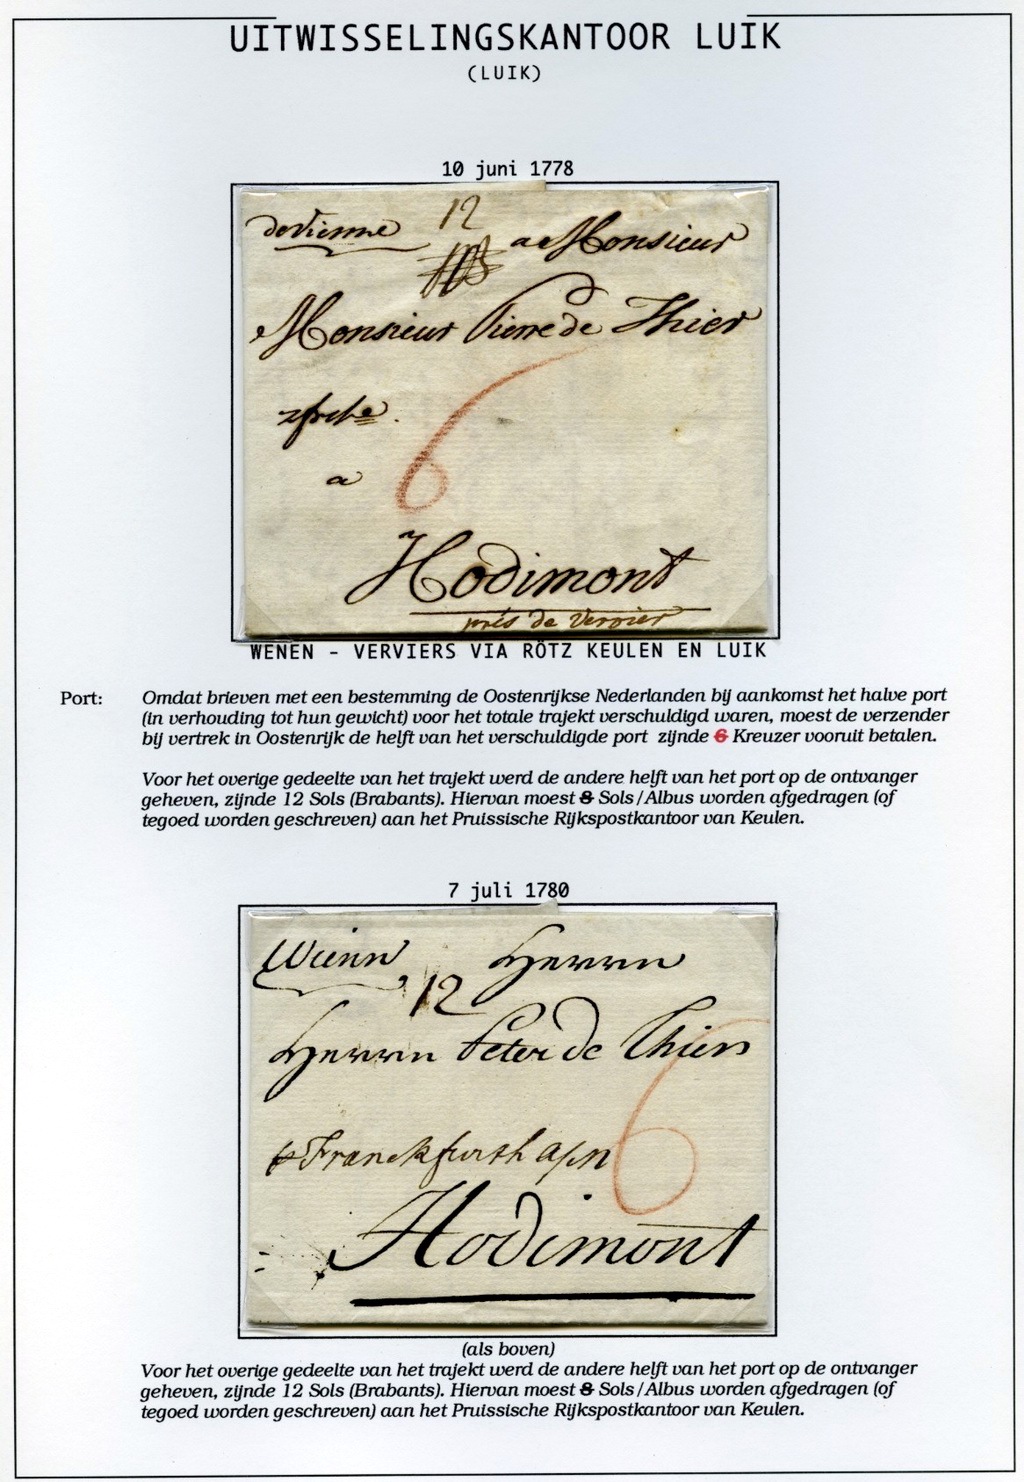 UITWISSELINGSKANTOOR LUIK
(LUIK)
10 juni 1778
de Vienne
12
a Monsieur
Monsieur Pierre de Thier
6
a
Hodimont
près de Vervier
WENEN - VERVIERS VIA RÖTZ KEULEN EN LUIK
Port: Omdat brieven met een bestemming de Oostenrijkse Nederlanden bij aankomst het halve port
(in verhouding tot hun gewicht) voor het totale trajekt verschuldigd waren, moest de verzender
bij vertrek in Oostenrijk de helft van het verschuldigde port zijnde 6 Kreuzer vooruit betalen.
Voor het overige gedeelte van het trajekt werd de andere helft van het port op de ontvanger
geheven, zijnde 12 Sols (Brabants). Hiervan moest 8 Sols/Albus worden afgedragen (of
tegoed worden geschreven) aan het Pruissische Rijkspostkantoor van Keulen.
7 juli 1780
Wienn
Herrn
12
Herrn Peter de Thier
6
Franckfurth a/m
Hodimont
(als boven)
Voor het overige gedeelte van het trajekt werd de andere helft van het port op de ontvanger
geheven, zijnde 12 Sols (Brabants). Hiervan moest 8 Sols/Albus worden afgedragen (of
tegoed worden geschreven) aan het Pruissische Rijkspostkantoor van Keulen.